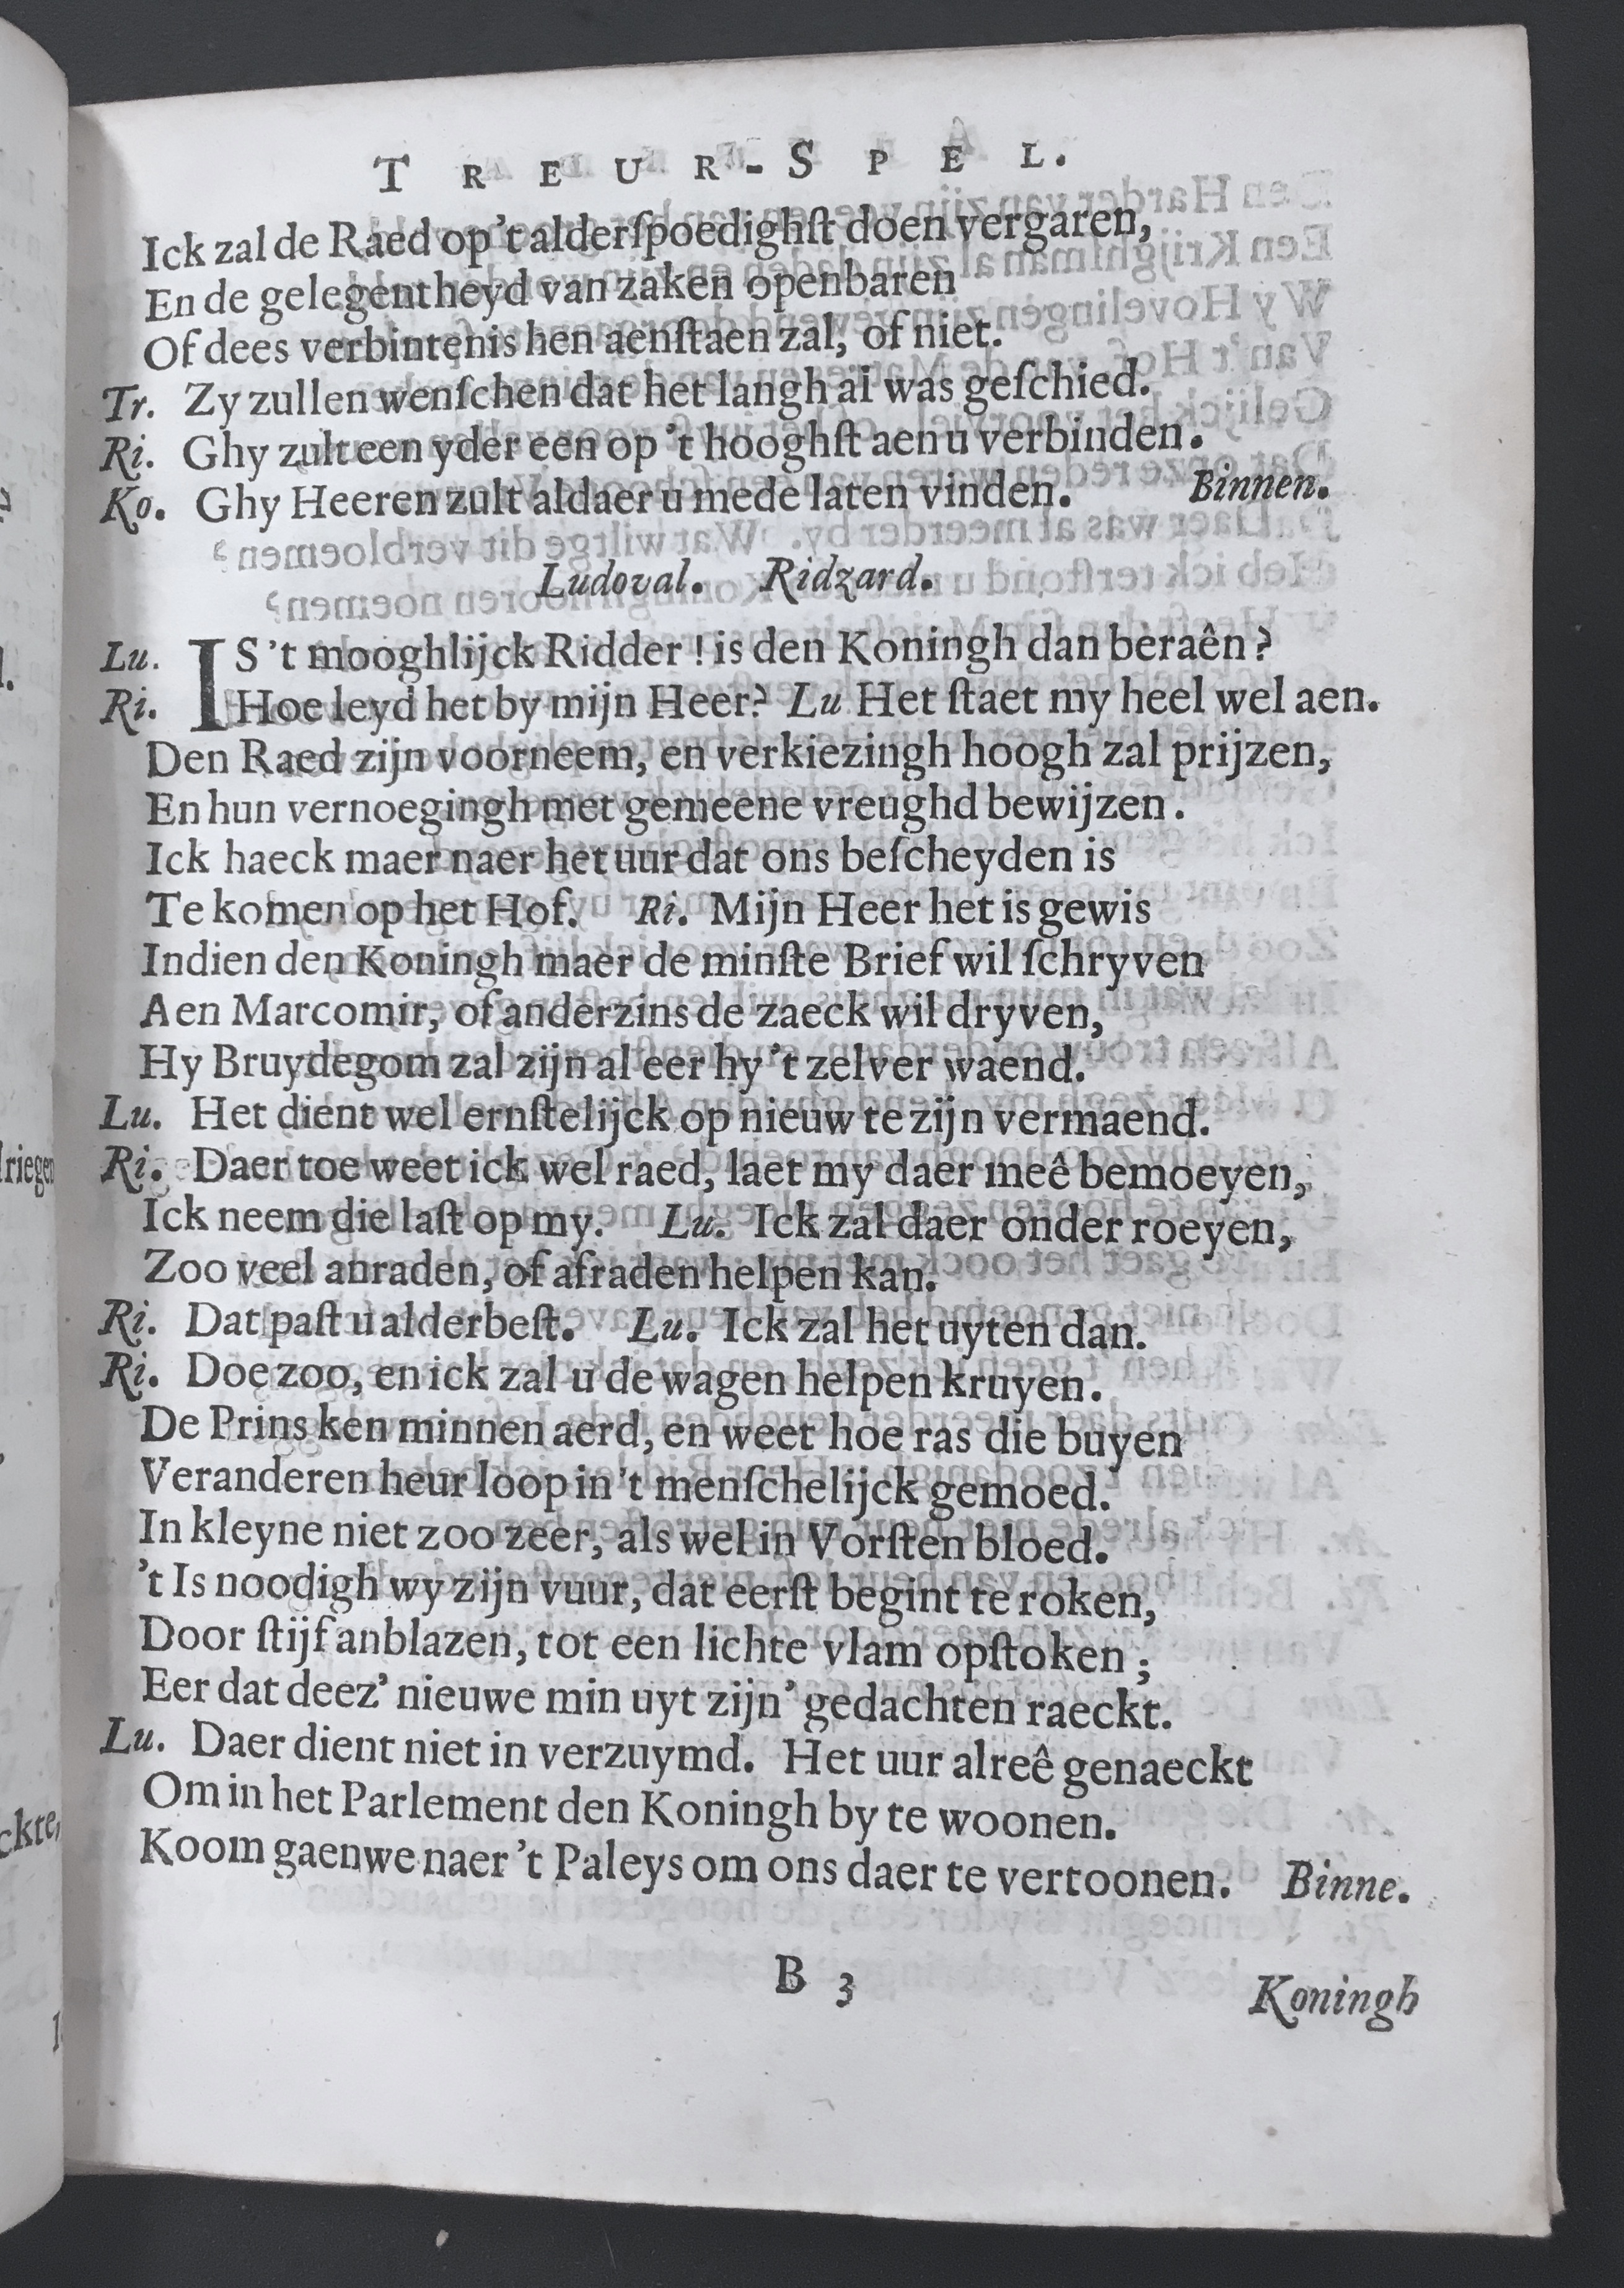 TREUR-SPEL.
Ick zal de Raed op 't alderſpoedighſt doen vergaren,
En de gelegentheyd van zaken openbaren
Of dees verbintenis hen aenſtaen zal, of niet.
Tr. Zy zullen wenſchen dat het langh al was geſchied.
Ri. Ghy zult een yder een op 't hooghſt aen u verbinden.
Ko. Ghy Heeren zult aldaer u mede laten vinden. Binnen.
Ludoval. Ridzard.
Lu. IS 't mooghlijck Ridder! is den Koningh dan beraên?
Ri. Hoe leyd het by mijn Heer? Lu Het ſtaet my heel wel aen.
Den Raed zijn voorneem, en verkiezingh hoogh zal prijzen,
En hun vernoegingh met gemeene vreughd bewijzen.
Ick haeck maer naer het uur dat ons beſcheyden is
Te komen op het Hof. Ri. Mijn Heer het is gewis
Indien den Koningh maer de minſte Brief wil ſchryven
Aen Marcomir, of anderzins de zaeck wil dryven,
Hy Bruydegom zal zijn al eer hy 't zelver waend.
Lu. Het dient wel ernſtelijck op nieuw te zijn vermaend.
Ri. Daer toe weet ick wel raed, laet my daer meê bemoeyen,
Ick neem die laſt op my. Lu. Ick zal daer onder roeyen,
Zoo veel anraden, of afraden helpen kan.
Ri. Dat paſt u alderbeſt. Lu. Ick zal het uyten dan.
Ri. Doe zoo, en ick zal u de wagen helpen kruyen.
De Prins ken minnen aerd, en weet hoe ras die buyen
Veranderen heur loop in 't menſchelijck gemoed.
In kleyne niet zoo zeer, als wel in Vorſten bloed.
't Is noodigh wy zijn vuur, dat eerſt begint te roken,
Door ſtijf anblazen, tot een lichte vlam opſtoken;
Eer dat deez' nieuwe min uyt zijn' gedachten raeckt.
Lu. Daer dient niet in verzuymd. Het uur alreê genaeckt
Om in het Parlement den Koningh by te woonen.
Koom gaenwe naer 't Paleys om ons daer te vertoonen. Binne.
B 3
Koningh